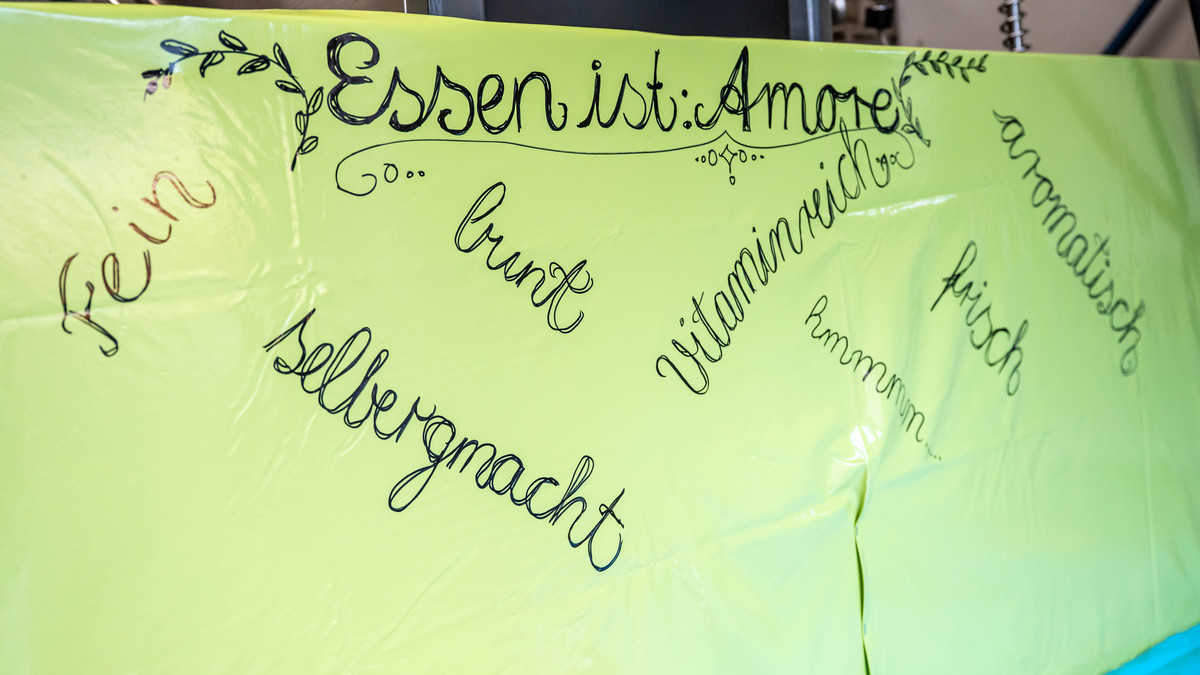 Essen ist: Amore
Fein
bunt
vitaminreich
aromatisch
frisch
hmmmm...
selbergmacht